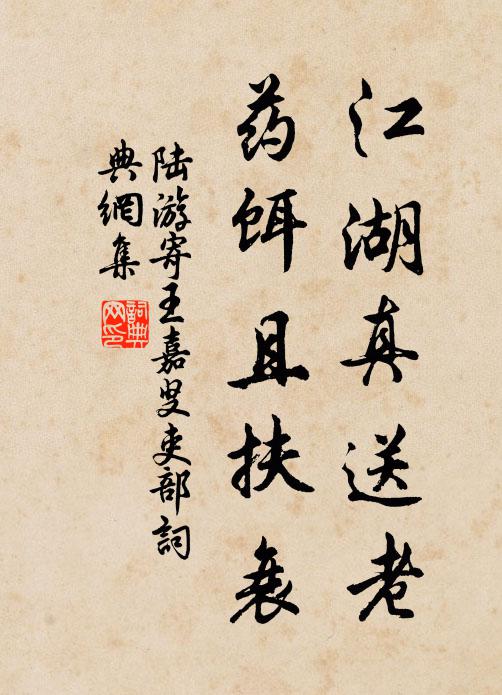 江湖真送老
药饵且扶衰
陆游寄王嘉叟吏部詞
典網集
詞典网印